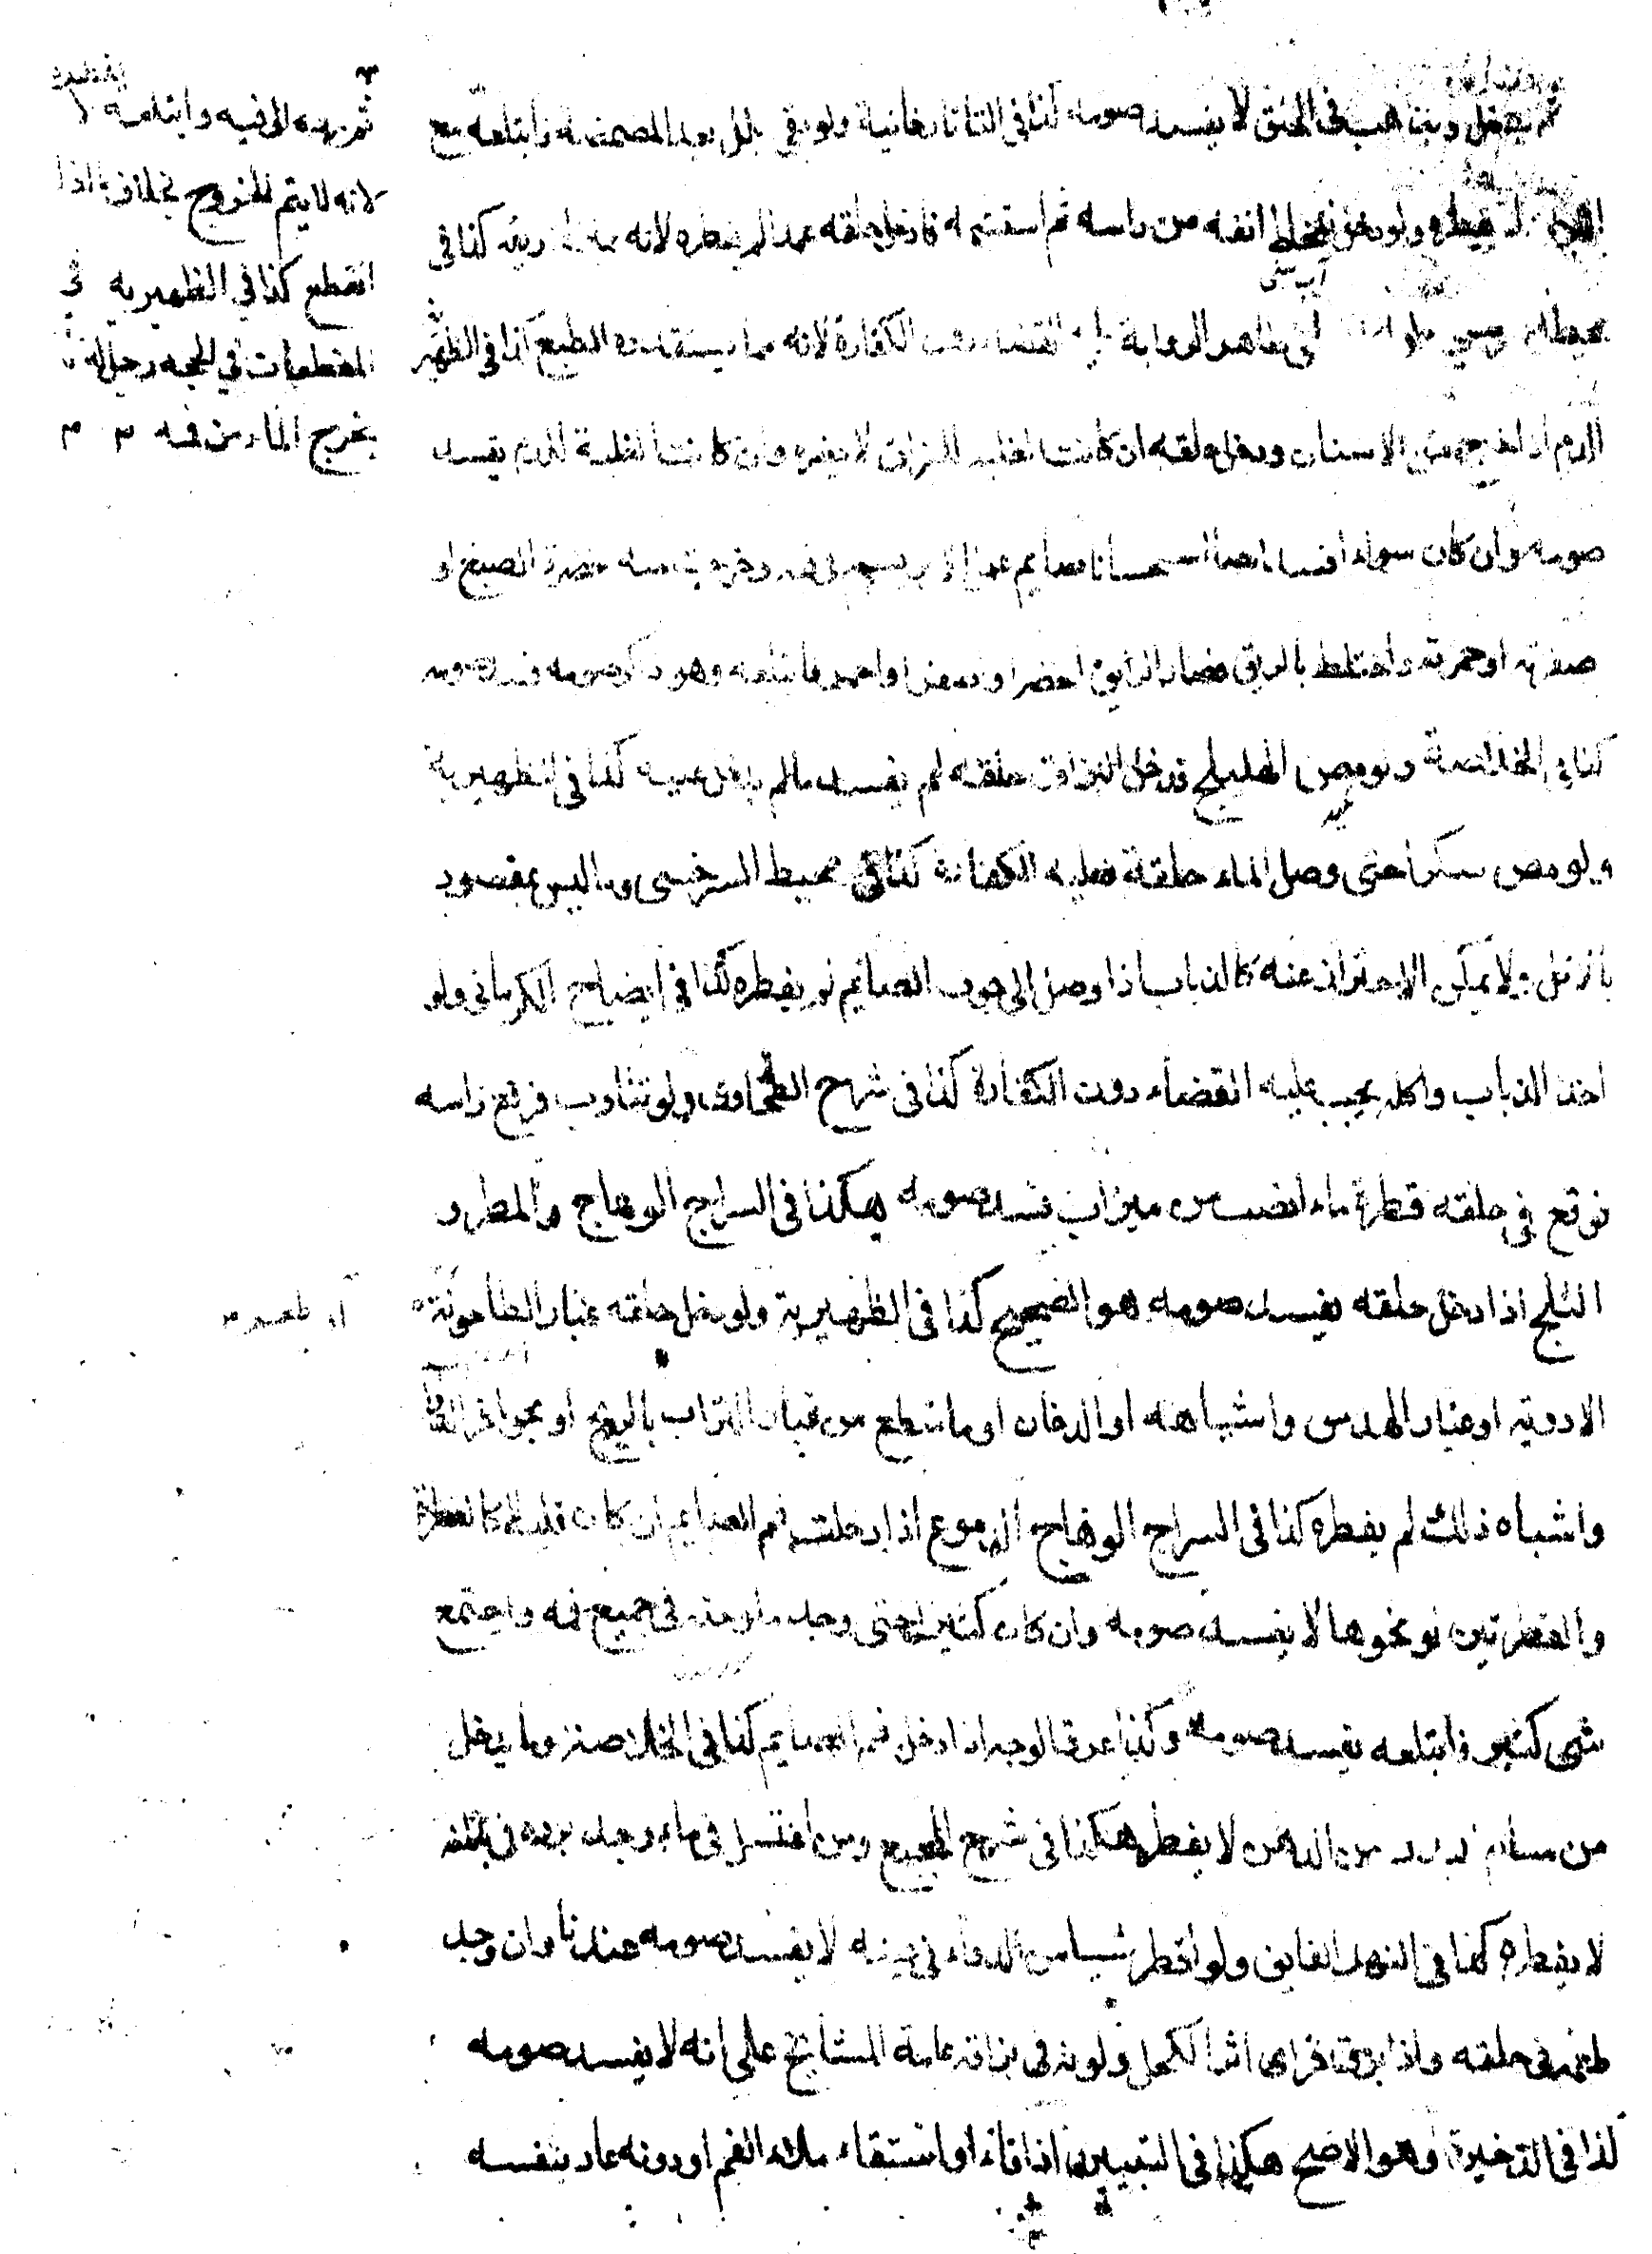 لا يفسد صومه كذا في التاتارخانية ولو بقي بلل بعد المضمضة وابتلعه مع
لم يفطره ولو دخل المخاط انفه من راسه ثم استشمه فادخل حلقه عمدا لم يفطره لانه بمنزلة ريقه كذا في
محيط ظاهر الرواية القضاء دون الكفارة لانه مما يستقذره الطبع كذا في الظهير
الدم اذا خرج من الاسنان ودخل حلقه ان كانت الغلبة للبزاق لا يضره وان كانت الغلبة للدم يفسد
صومه وان كان سواء افسد ايضا استحسانا صايم عمل الابريسم في فيه وخرجت منه خضرة الصبغ او
صفرته او حمرته واختلط بالريق فصار الريق اخضر او اصفر او احمر فابتلعه وهو ذاكر صومه فسد صومه
كذا في الخلاصة ولو مص الهليلج فدخل البزاق حلقه لم يفسد ما لم يدخل عينه كذا في الظهيرية
ولو مص سكرا حتى وصل الماء حلقه فعليه الكفارة كذا في محيط السرخسي وما ليس بمقصود
بالاكل ولا يمكن الاحتراز عنه كالذباب اذا وصل الى جوف الصايم لم يفطره كذا في ايضاح الكرماني ولو
اخذ الذباب واكله يجب عليه القضاء دون الكفارة كذا في شرح الطحاوي ولو تثاوب فرفع راسه
فوقع في حلقه قطرة ماء انصب من ميزاب فسد صومه هكذا في السراج الوهاج والمطر و
الثلج اذا دخل حلقه يفسد صومه هو الصحيح كذا في الظهيرية ولو دخل حلقه غبار الطاحونة
الادوية او غبار الهدس واشباهه او الدخان او ما سطع من غبار التراب بالريح او بحوافر الدواب
واشباه ذلك لم يفطره كذا في السراج الوهاج الدموع اذا دخلت فم الصايم ان كان قليلا كالقطرة
والقطرتين او نحوها لا يفسد صومه وان كان كثيرا حتى وجد ملوحته في جميع فمه واجتمع
شي كثير فابتلعه يفسد صومه وكذا عرق الوجه اذا دخل فم الصايم كذا في الخلاصة وما يدخل
من مسام البدن من الدهن لا يفطر هكذا في شرح المجمع ومن اغتسل في ماء وجد برده في باطنه
لا يفطره كذا في النهر الفايق ولو اقطر شيا من الدواء في عينه لا يفسد صومه عندنا وان وجد
طعمه في حلقه واذا بزق فراى اثر الكحل ولونه في بزاقه عامة المشايخ على انه لا يفسد صومه
كذا في الذخيرة وهو الاصح هكذا في التبيين اذا قاء او استقاء ملاء الفم او دونه عاد بنفسه
الى فيه وابتلعه لا
لانه لا يتم الخروج بخلاف ما اذا
انقطع كذا في الظهيرية في
المقطعات في الحجه رجل له
يخرج الماء من فمه